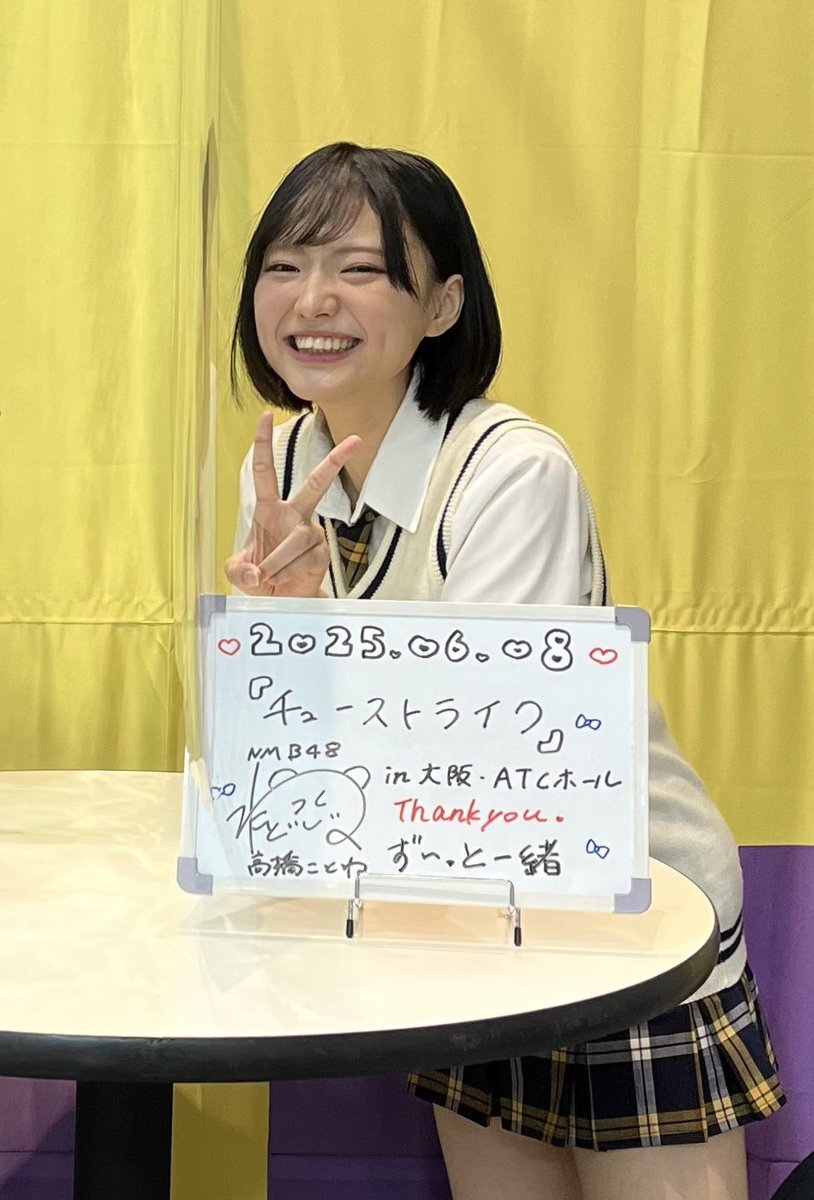 2025.06.08
『チューストライク』
NMB48
in 大阪・ATCホール
Thank you.
高橋ことね
ず〜っと一緒